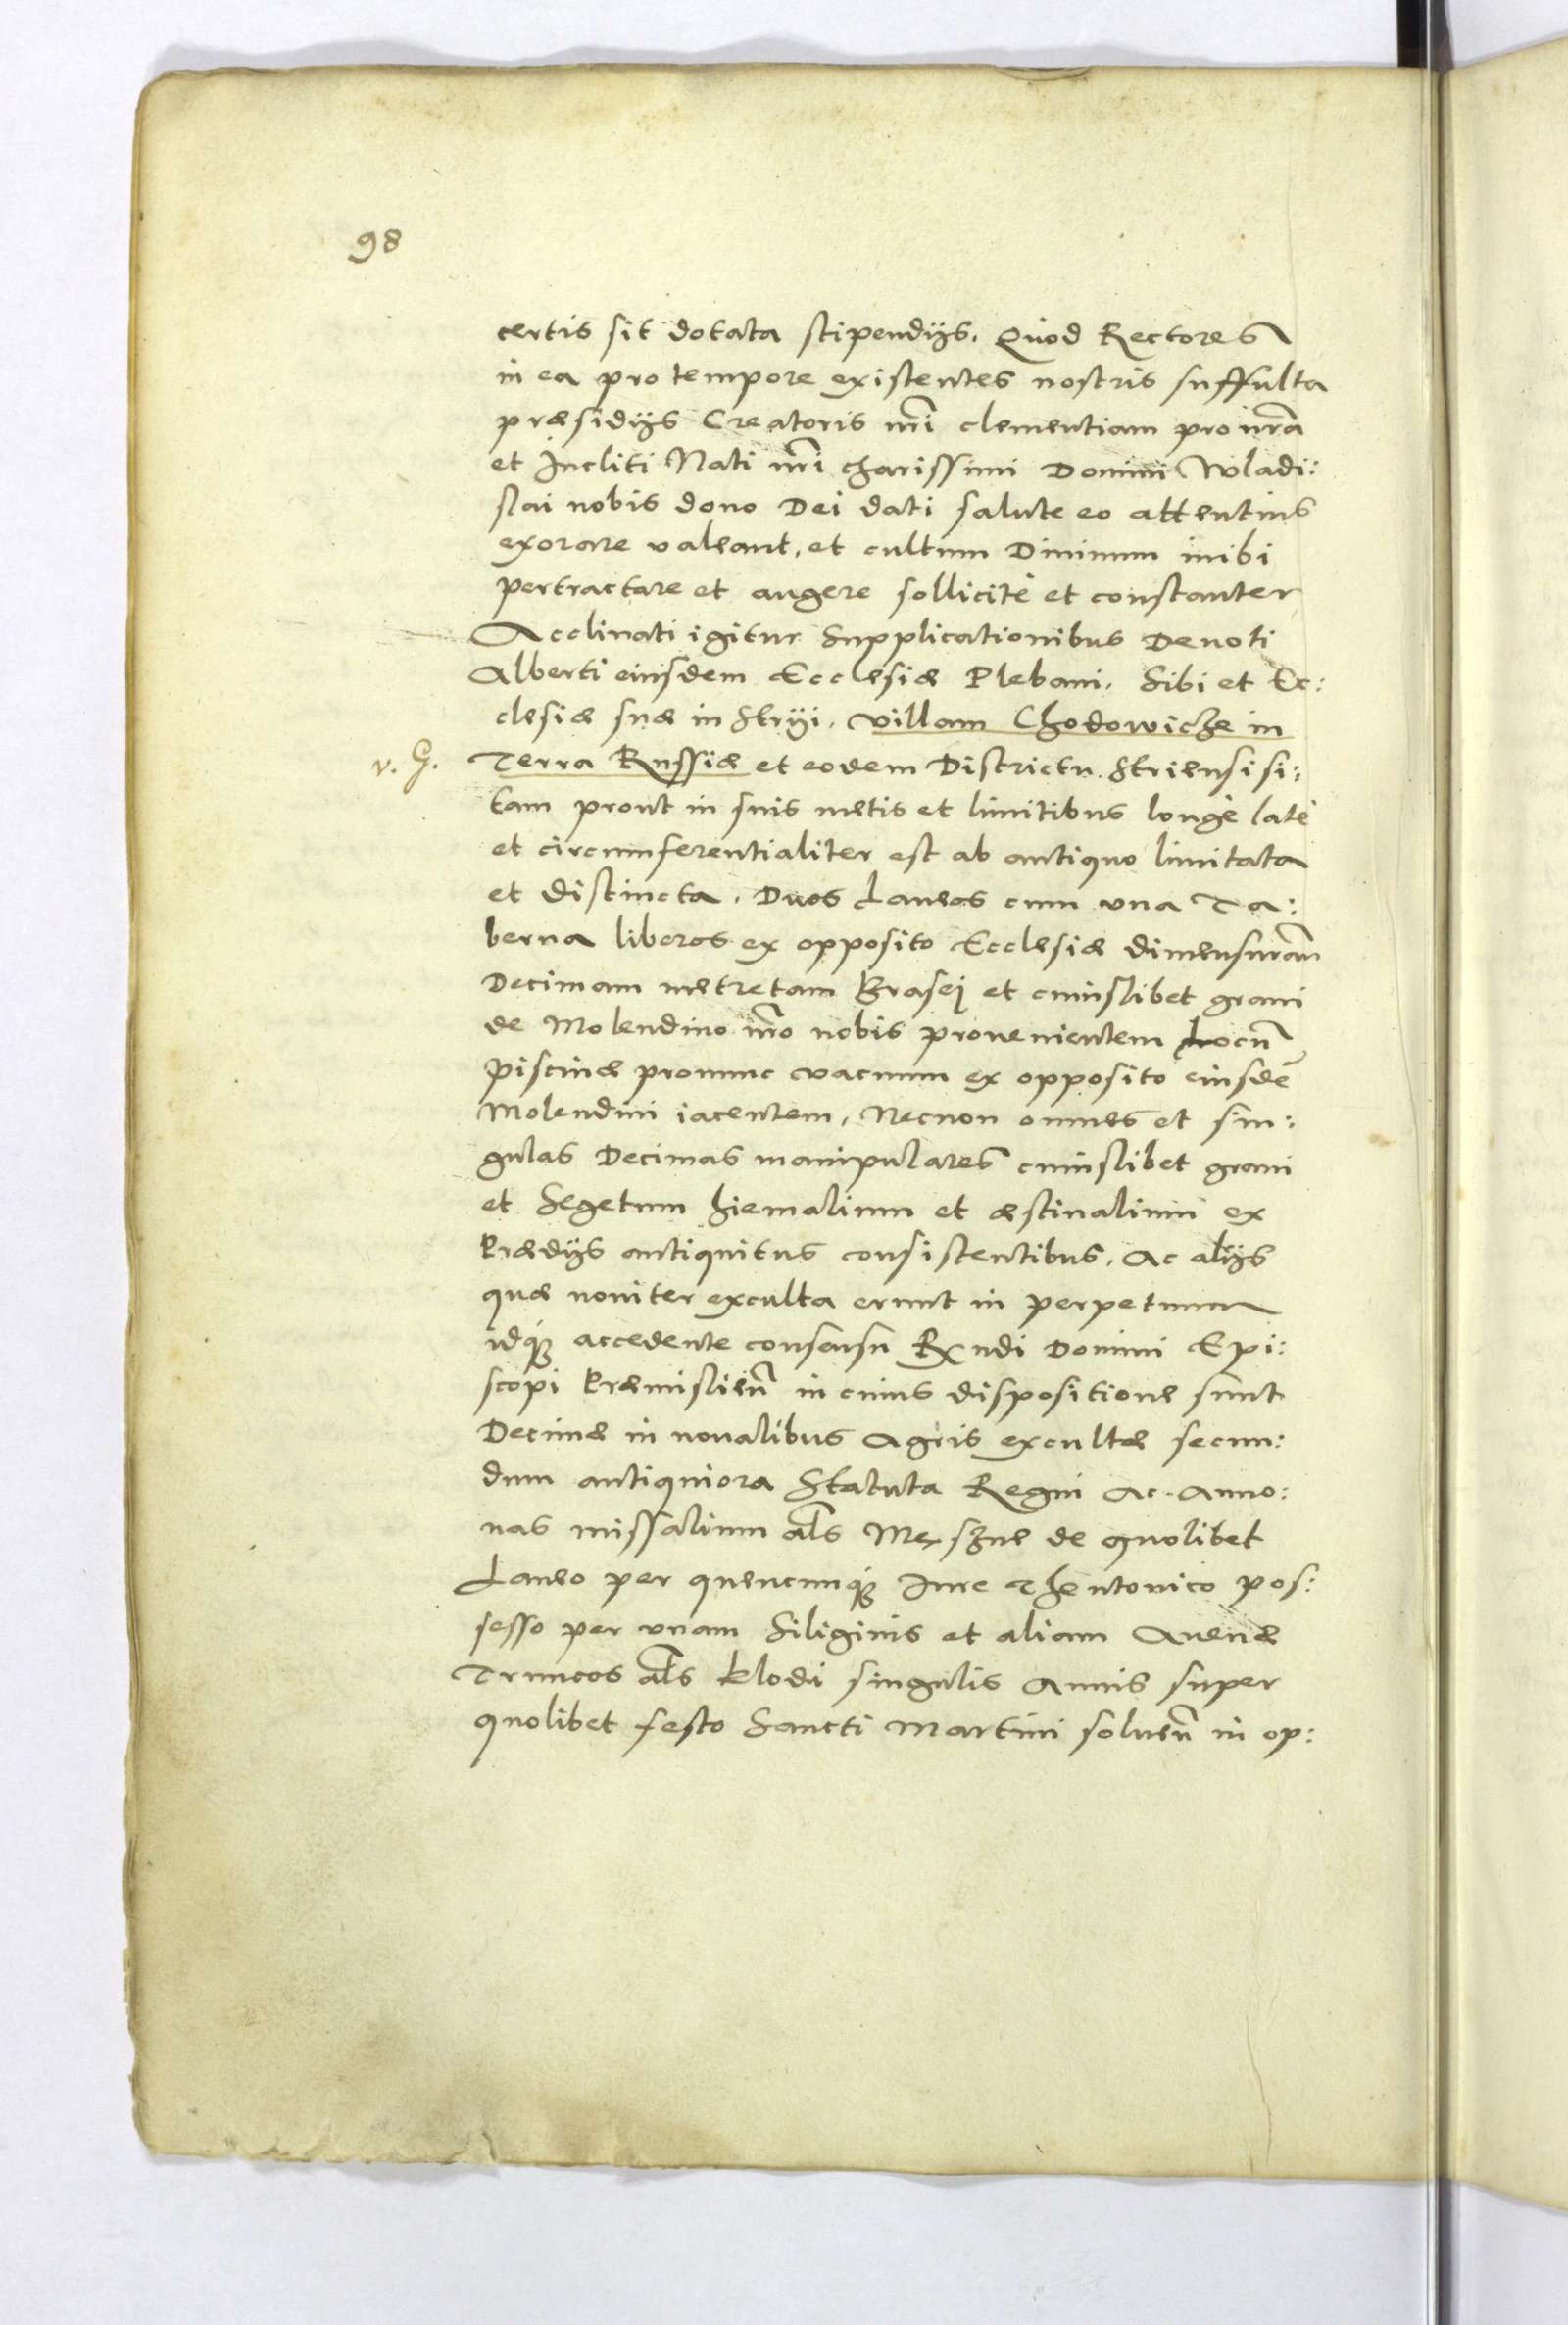 98
certis sit dotata stipendijs. Quod Rectores
in ea pro tempore existentes nostris suffulta
præsidijs Creatoris nr̃i clementiam pro nr̃a
et Incliti Nati nr̃i charissimi Domini Wladi:
slai nobis dono Dei dati salute eo attentius
exorare valeant, et cultum Diuinum inibi
pertractare et augere sollicitè et constanter
Acclinati igitur Supplicationibus Deuoti
Alberti eiusdem Ecclesiæ Plebani. Sibi et Ec:
clesiæ suæ in Stryi. Villam Chodowicze in
v. G. Terra Russiæ et eodem Districtu Striensi si:
tam prout in suis metis et limitibus longè latè
et circumferentialiter est ab antiquo limitata
et distincta. Duos Laneos cum vna Ta:
berna liberos ex opposito Ecclesiæ dimensuram̃
Decimam metretam Brasej et cuiuslibet grani
de Molendino nr̃o nobis prouenientem locũ
piscinæ pronunc vacuum ex opposito eiusdẽ
Molendini iacentem, Necnon omnes et sin:
gulas Decimas manipulares cuiuslibet grani
et Segetum hiemalium et æstiualium ex
Prædijs antiquitus consistentibus. Ac alijs
quæ nouiter exculta erunt in perpetuum
idq́; accedente consensu Rx̃ndi Domini Epi:
scopi Præmislieñ in cuius dispositione sunt
Decimæ in noualibus Agris excultæ secun:
dum antiquiora Statuta Regni Ac Anno:
nas missalium al̃s Meszne de quolibet
Laneo per quencunq́; Iure Theutonico pos:
sesso per vnam Siliginis et aliam Auenæ
Truncos al̃s klodi singulis Annis super
quolibet festo Sancti Martini solueñ in op: